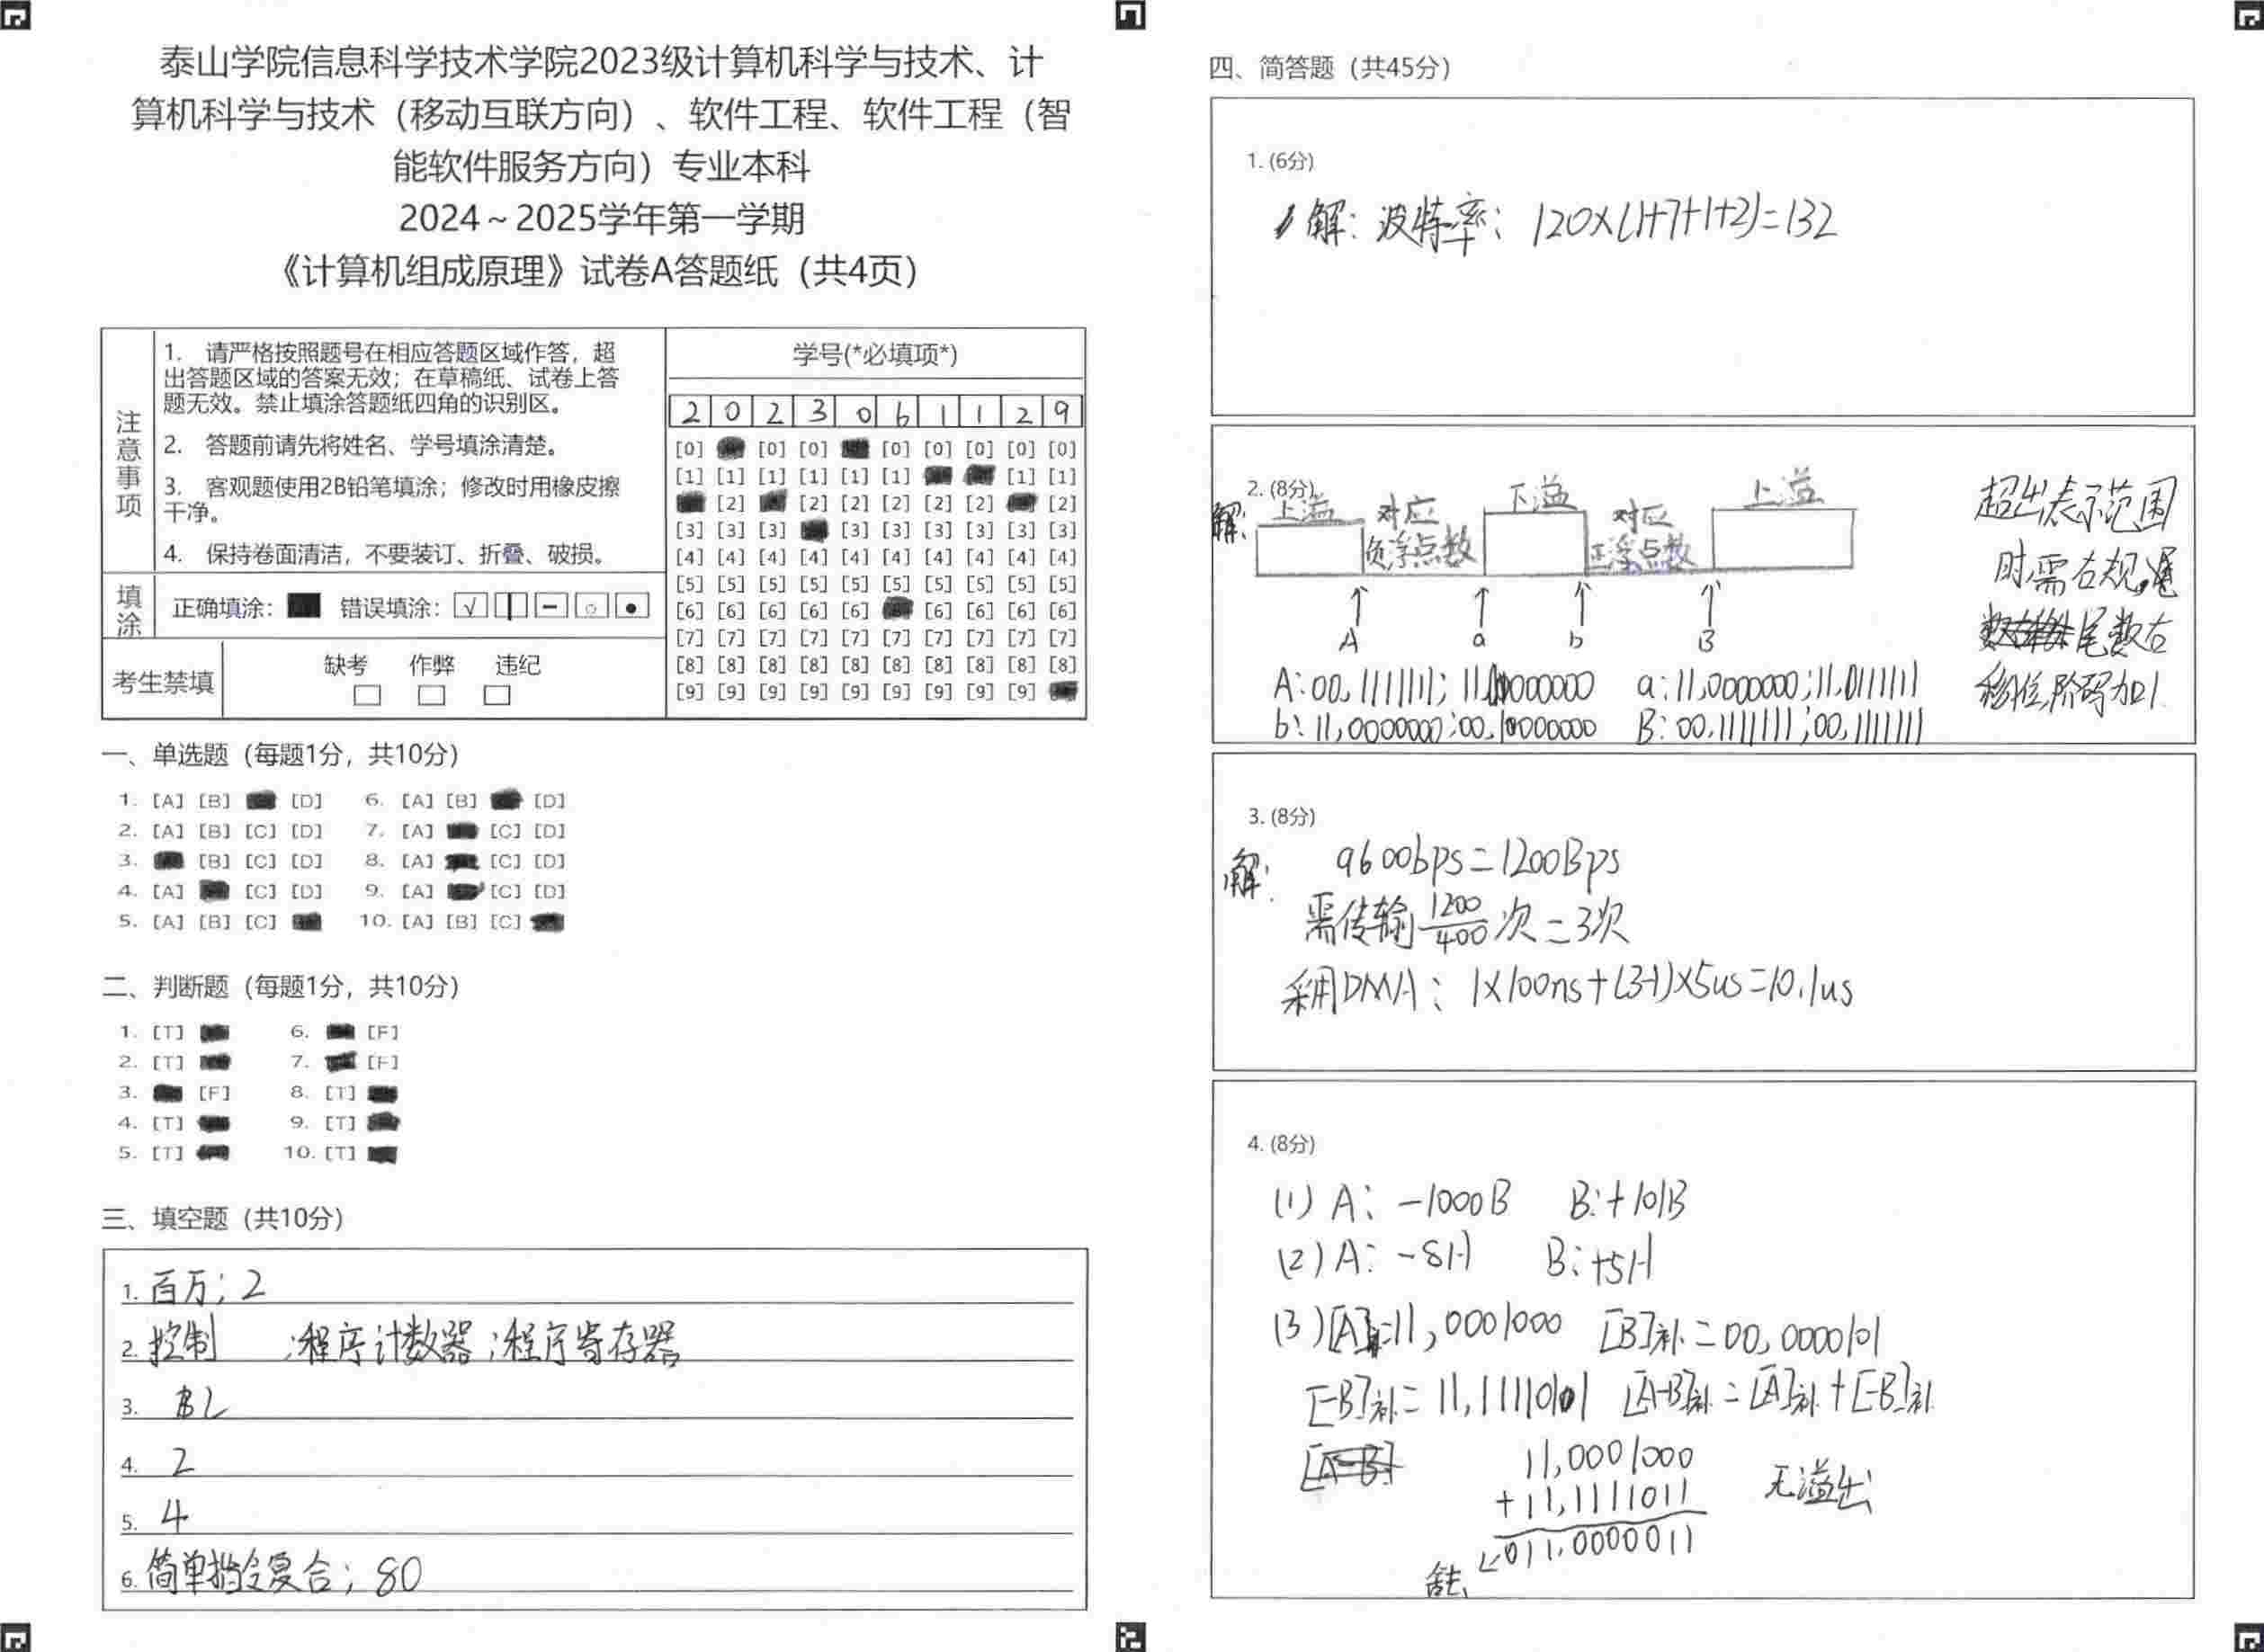 泰山学院信息科学技术学院2023级计算机科学与技术、计
算机科学与技术（移动互联方向）、软件工程、软件工程（智
能软件服务方向）专业本科
2024～2025学年第一学期
《计算机组成原理》试卷A答题纸（共4页）
注意事项
1. 请严格按照题号在相应答题区域作答，超
出答题区域的答案无效；在草稿纸、试卷上答
题无效。禁止填涂答题纸四角的识别区。
2. 答题前请先将姓名、学号填涂清楚。
3. 客观题使用2B铅笔填涂；修改时用橡皮擦
干净。
4. 保持卷面清洁，不要装订、折叠、破损。
填涂
正确填涂： 错误填涂：
考生禁填
缺考 作弊 违纪
学号(*必填项*)
2 0 2 3 0 6 1 1 2 9
[0] [0] [0] [0] [0] [0] [0] [0]
[1] [1] [1] [1] [1] [1] [1] [1]
[2] [2] [2] [2] [2] [2] [2]
[3] [3] [3] [3] [3] [3] [3] [3] [3]
[4] [4] [4] [4] [4] [4] [4] [4] [4] [4]
[5] [5] [5] [5] [5] [5] [5] [5] [5] [5]
[6] [6] [6] [6] [6] [6] [6] [6] [6]
[7] [7] [7] [7] [7] [7] [7] [7] [7] [7]
[8] [8] [8] [8] [8] [8] [8] [8] [8] [8]
[9] [9] [9] [9] [9] [9] [9] [9] [9]
一、单选题（每题1分，共10分）
1. [A] [B] [D] 6. [A] [B] [D]
2. [A] [B] [C] [D] 7. [A] [C] [D]
3. [B] [C] [D] 8. [A] [C] [D]
4. [A] [C] [D] 9. [A] [C] [D]
5. [A] [B] [C] 10. [A] [B] [C]
二、判断题（每题1分，共10分）
1. [T] 6. [F]
2. [T] 7. [F]
3. [F] 8. [T]
4. [T] 9. [T]
5. [T] 10. [T]
三、填空题（共10分）
1. 百万；2
2. 控制 ；程序计数器；程序寄存器
3. BL
4. 2
5. 4
6. 简单指令复合；80
四、简答题（共45分）
1. (6分)
解：波特率：120×(1+7+1+2)=132
2. (8分)
解：
上溢 对应 下溢 对应 上溢
负浮点数 正浮点数
A a b B
A:00,1111111; 11,00000000 a:11,0000000;11,01111111
b:11,0000000;00,10000000 B:00,1111111;00,1111111
超出表示范围
时,需右规,
尾数右
移1位,阶码加1.
3. (8分)
解： 9600bps=1200Bps
需传输1200/400次=3次
采用DMA：1×100ns+(3-1)×5us=10.1us
4. (8分)
(1) A：-1000B B:+101B
(2) A：-8H B:+5H
(3) [A]补=11,0001000 [B]补=00,0000101
[-B]补=11,1111011 [A-B]补=[A]补+[-B]补
11,0001000
+11,1111011
011,0000011
无溢出
舍去